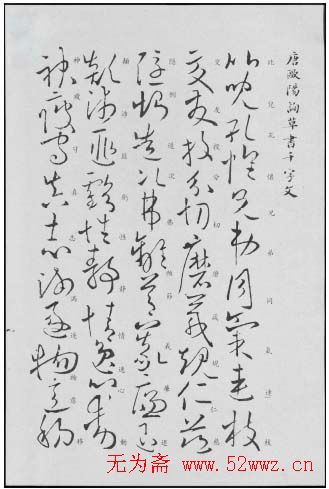 唐歐陽詢草書千字文
比兒孔懷兄弟同氣連枝
比兒孔懷兄弟同氣連枝
交友投分切磨箴規仁慈
交友投分切磨箴規仁慈
隱惻造次弗離節義廉退
隱惻造次弗離節義廉退
顛沛匪虧性靜情逸心動
顛沛匪虧性靜情逸心動
神疲守真志滿逐物意移
神疲守真志滿逐物意移
无为斋 www.52wwz.cn